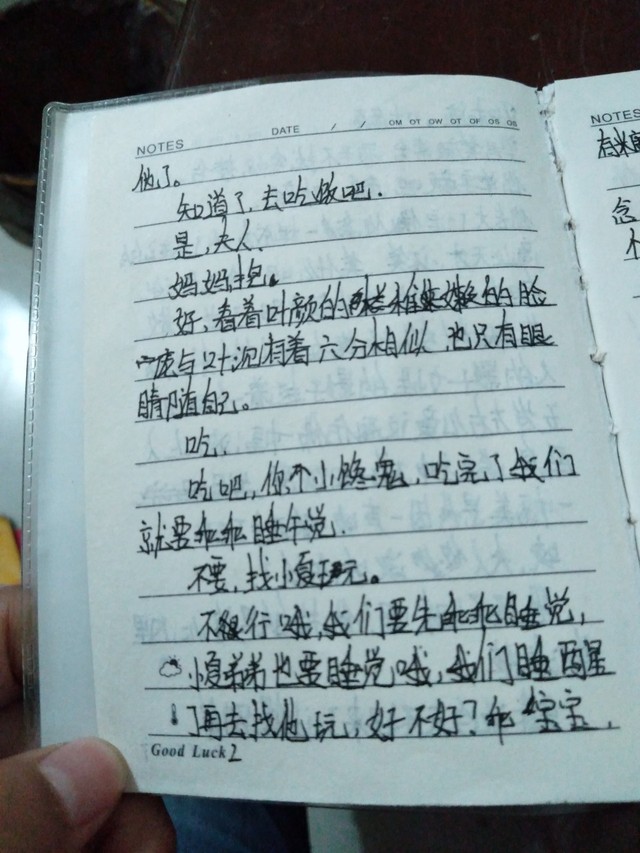 NOTES DATE / / OM OT OW OT OF OS OS
他了。
知道了,去吃饭吧.
是,夫人.
妈妈抱。
好,看着叶颜的稚嫩的脸
庞与叶沉有着六分相似,也只有眼
睛随自己。
吃.
吃吧,你个小馋鬼,吃完了我们
就要乖乖睡午觉.
不要,找小夏玩。
不行哦,我们要先乖乖自睡觉,
小夏弟弟也要睡觉哦,我们睡醒
了再去找他玩,好不好?乖宝宝,
Good Luck 2
NOTES
有米
念
不